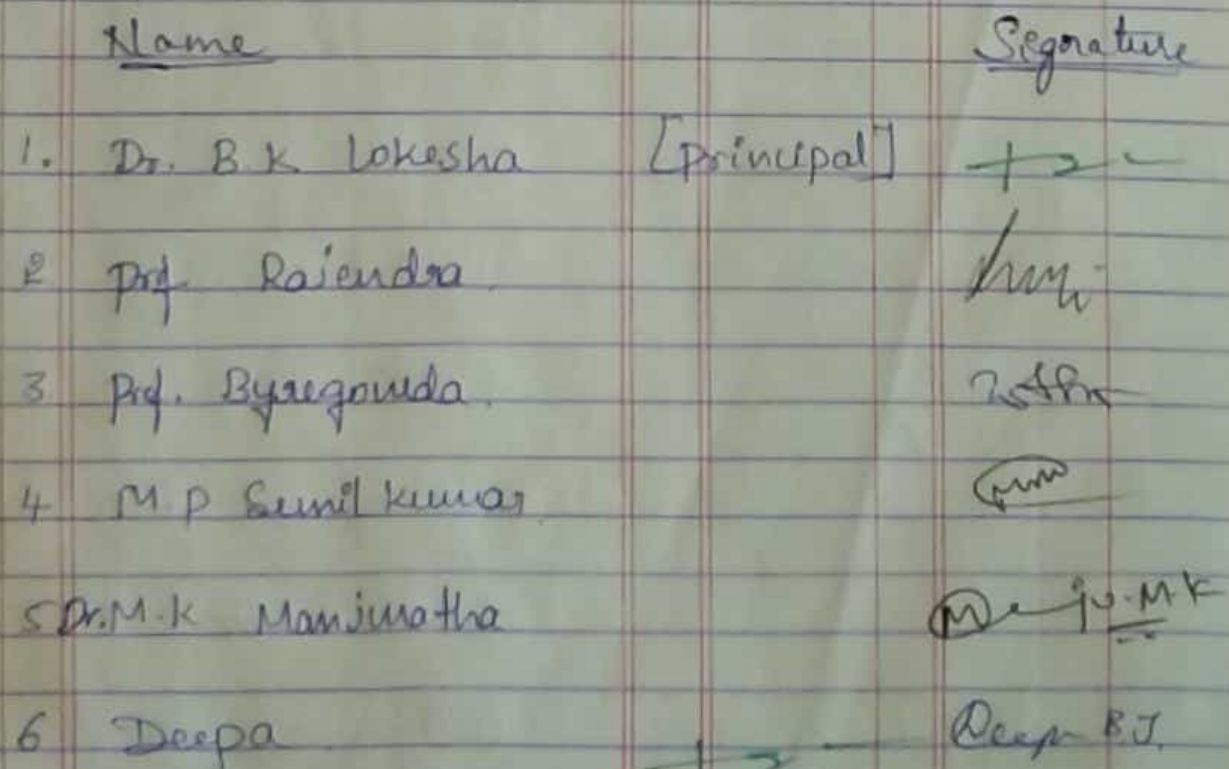 Name Segnature
1. Dr. B K Lokesha [principal]
2 Prof Rajendra
3 Prof. Byregowda.
4 M P Sunil Kumar
5 Dr. M.K Manjunatha M ju.M K
6 Deepa Deepa B.J.